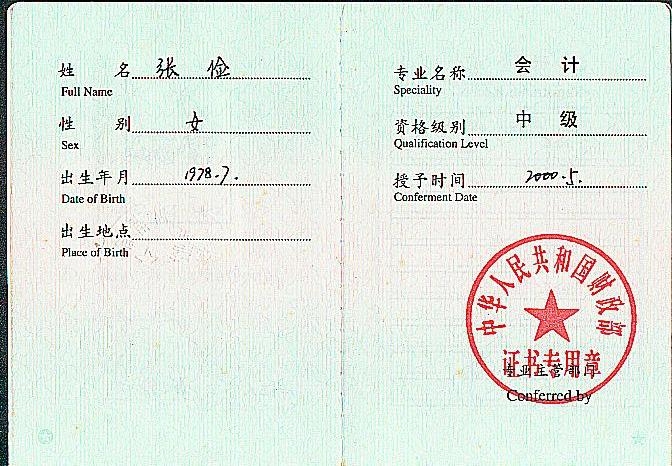 姓 名 张 俭
Full Name
性 别 女
Sex
出生年月 1978.7.
Date of Birth
出生地点
Place of Birth
专业名称 会 计
Speciality
资格级别 中 级
Qualification Level
授予时间 2000.5.
Conferment Date
中华人民共和国财政部
证书专用章
专业主管部门
Conferred by